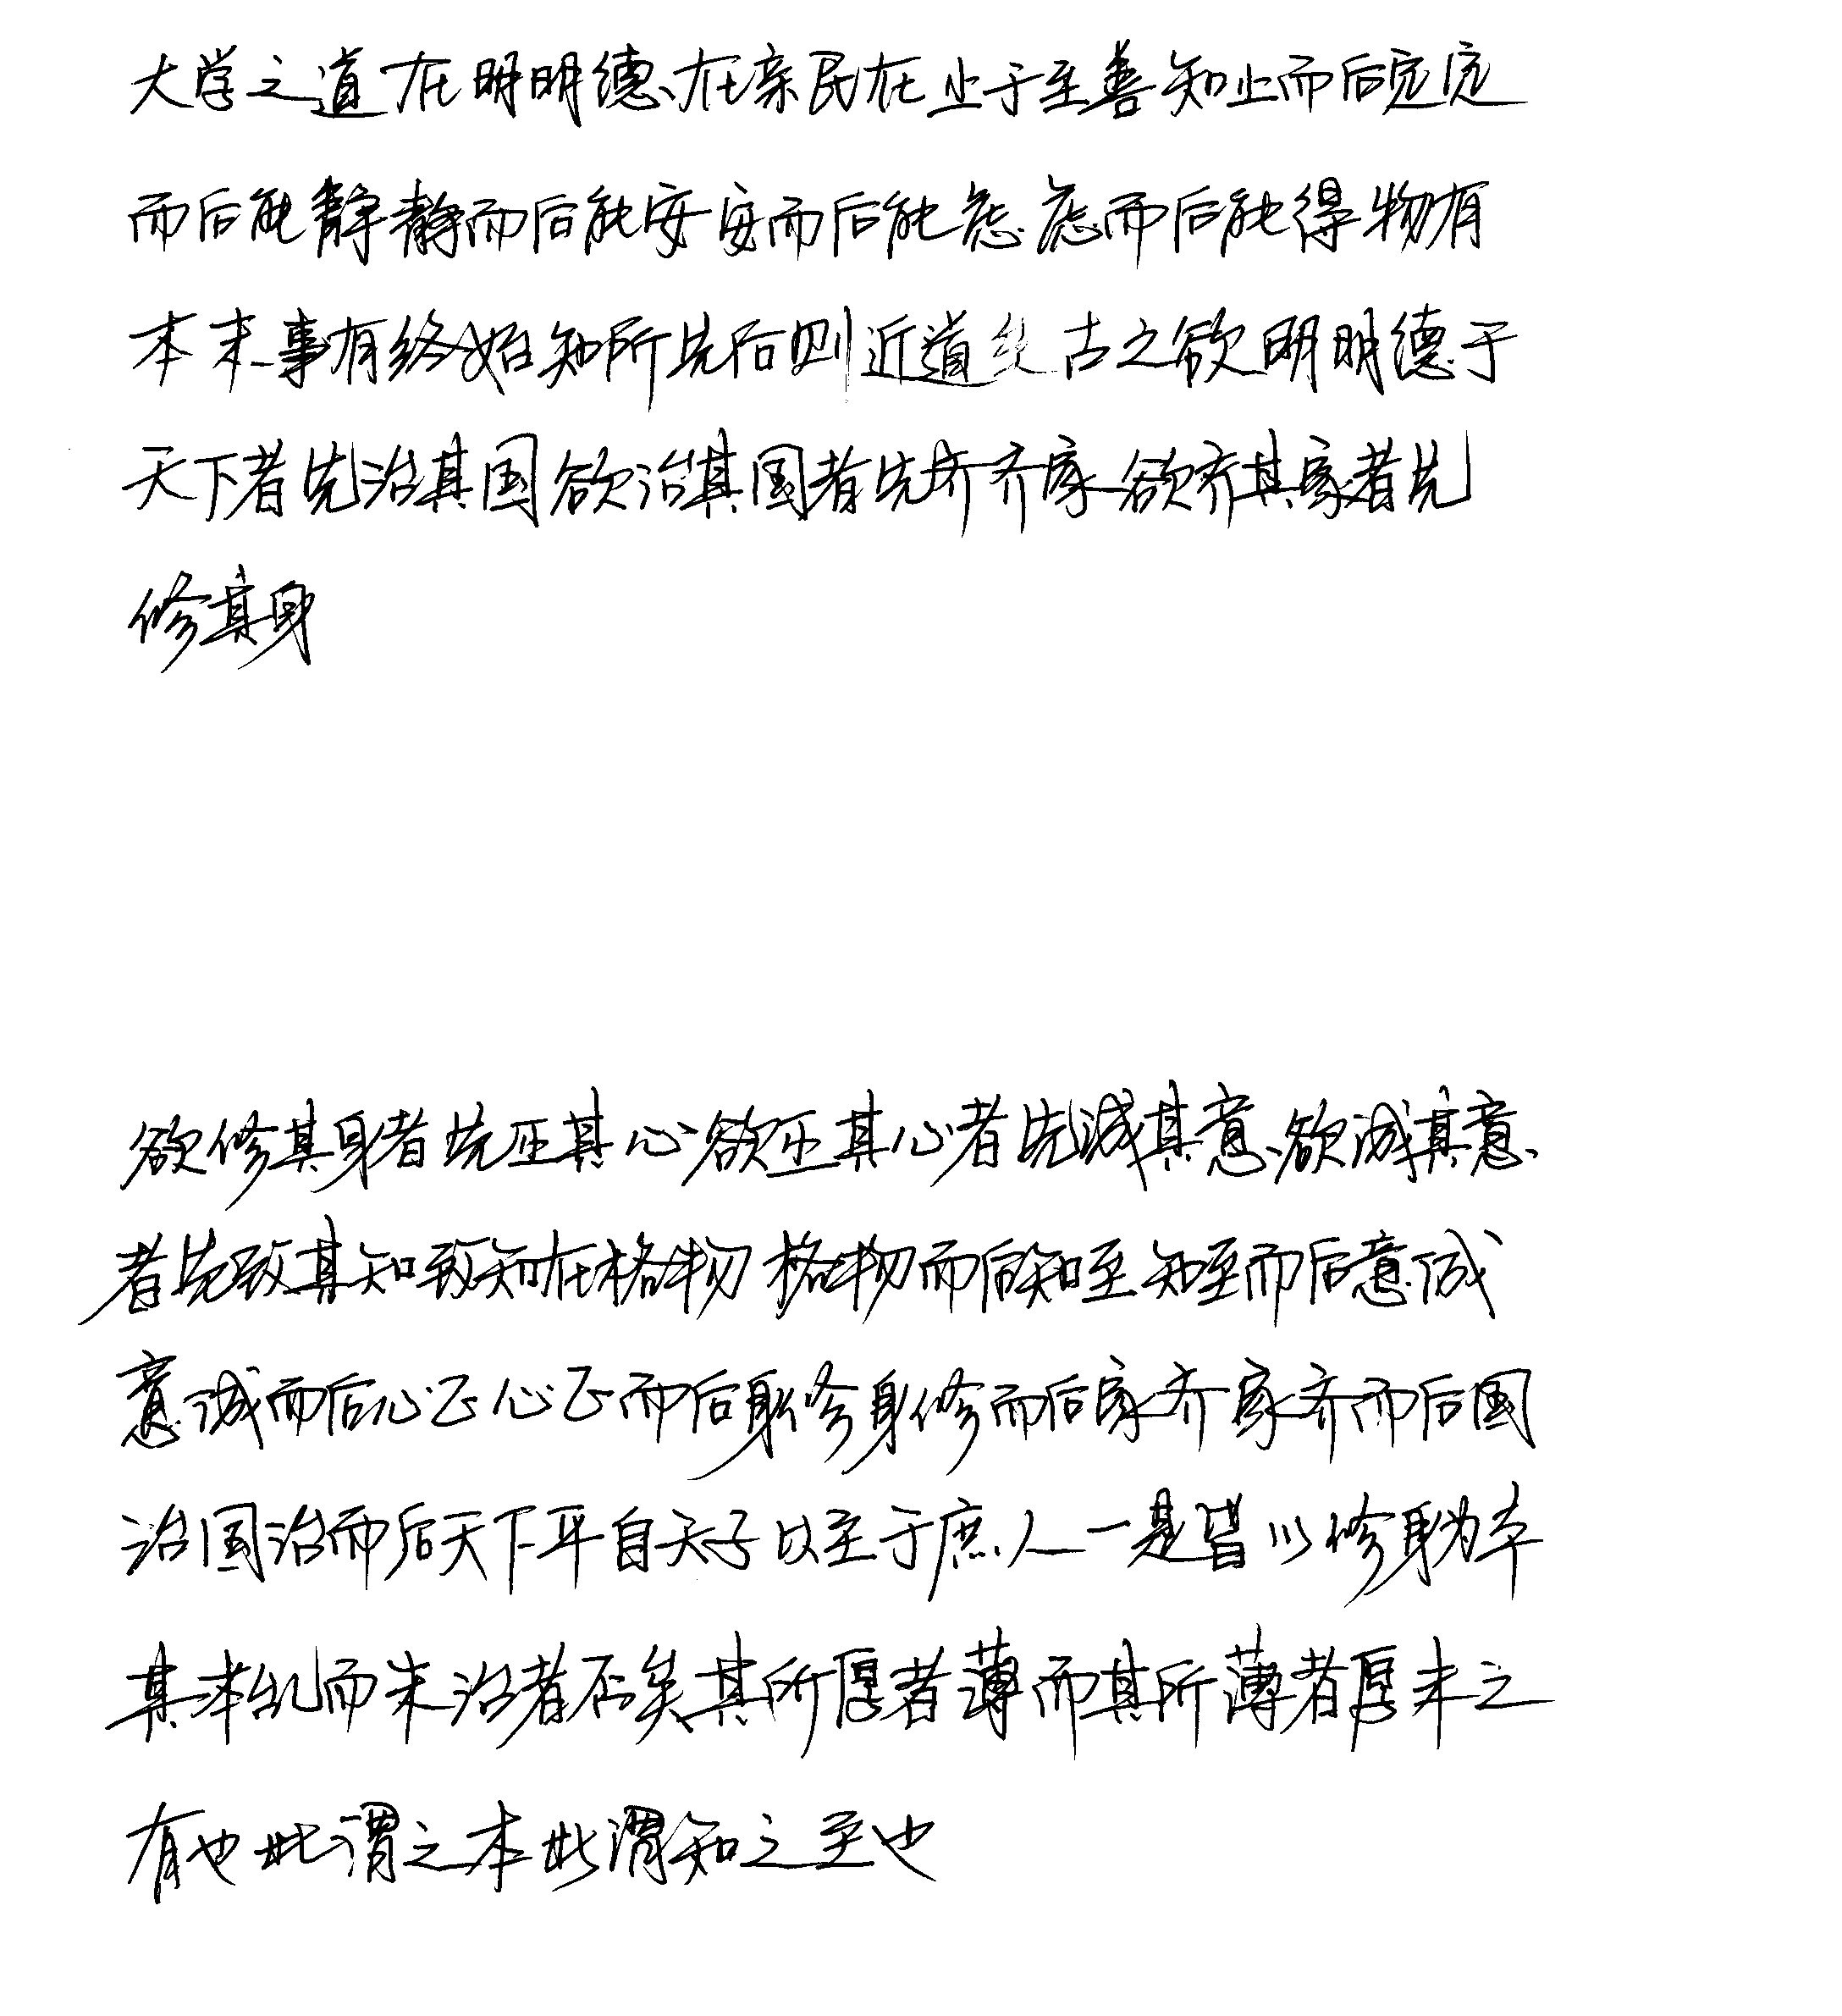 大学之道在明明德在亲民在止于至善知止而后定定
而后能静静而后能安安而后能虑虑而后能得物有
本末事有终始知所先后则近道矣古之欲明明德于
天下者先治其国欲治其国者先齐齐家欲齐其家者先
修其身
欲修其身者先正其心欲正其心者先诚其意欲诚其意
者先致其知致知在格物格物而后知至知至而后意诚
意诚而后心正心正而后身修身修而后家齐家齐而后国
治国治而后天下平自天子以至于庶人一是皆以修身为本
其本乱而末治者否矣其所厚者薄而其所薄者厚未之
有也此谓之本此谓知之至也